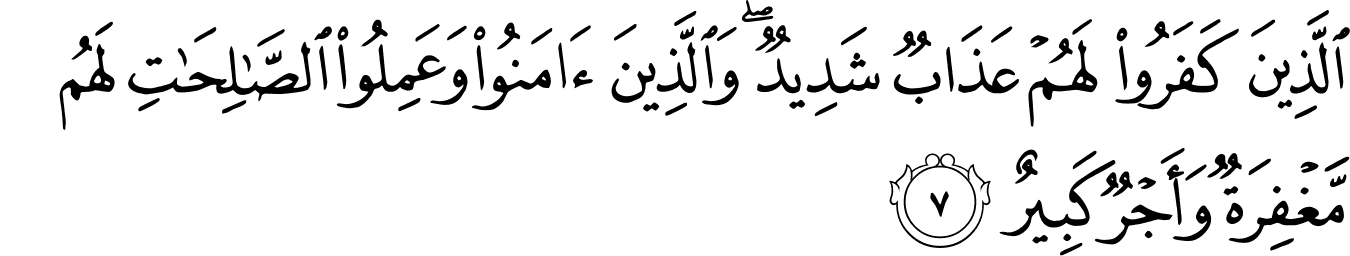 ٱلَّذِينَ كَفَرُوا۟ لَهُمۡ عَذَابٌ شَدِيدٌۖ وَٱلَّذِينَ ءَامَنُوا۟ وَعَمِلُوا۟ ٱلصَّـٰلِحَـٰتِ لَهُم
مَّغۡفِرَةٌ وَأَجۡرٌ كَبِيرٌ ٧